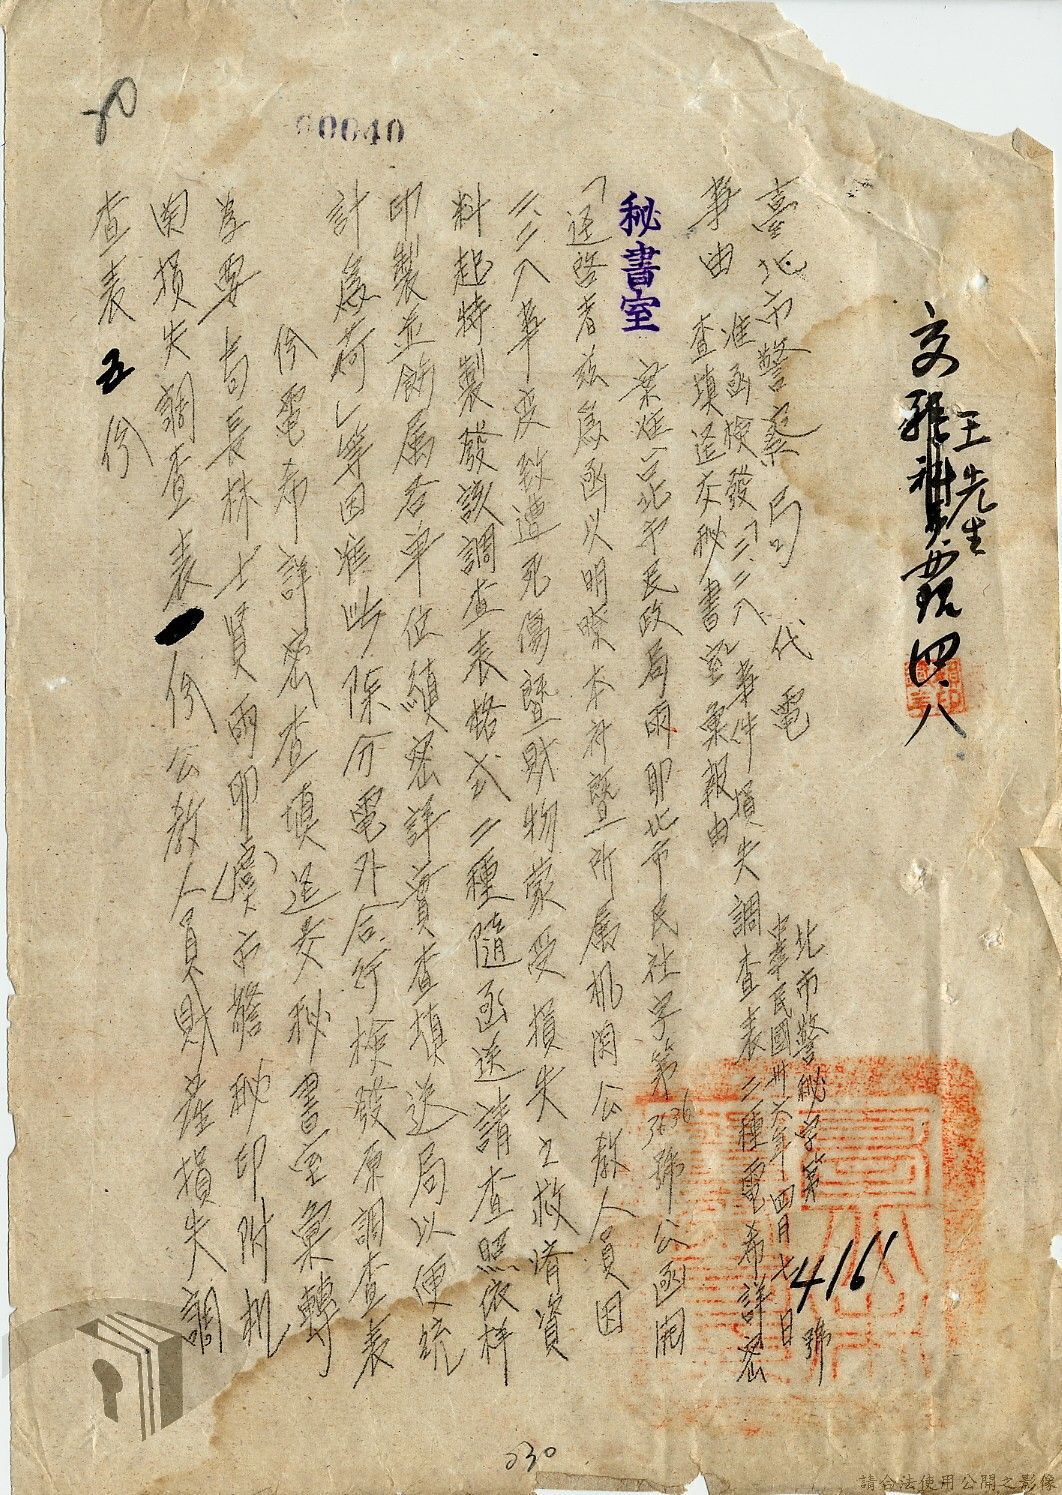 00040
王先生
四.八
臺北市警察局代電
北市警秘字第4161號
中華民國卅六年四月七日
事由
准函檢發「二.二八」事件損失調查表二種電希詳密
查填逕交秘書室彙報由
秘書室
案准台北市民政局雨卯北市民社字第3636號公函開
「逕啓者玆為函以明瞭本府暨所屬机関公教人員因
二.二八事变致遭死傷暨財物蒙受損失之救済資
料起特製發該調查表格式二種隨函送請查照依樣
印製並飭屬各单位縝密詳實查填送局以便統
計為荷」等因准此除分電外合行檢發原調查表
份電希詳密查填逕交秘書室彙轉
為要局長林士賢雨卯(虞)市警秘印附机
関損失調查表 份公教人員財產損失調
查表五份
230
請合法使用公開之影像